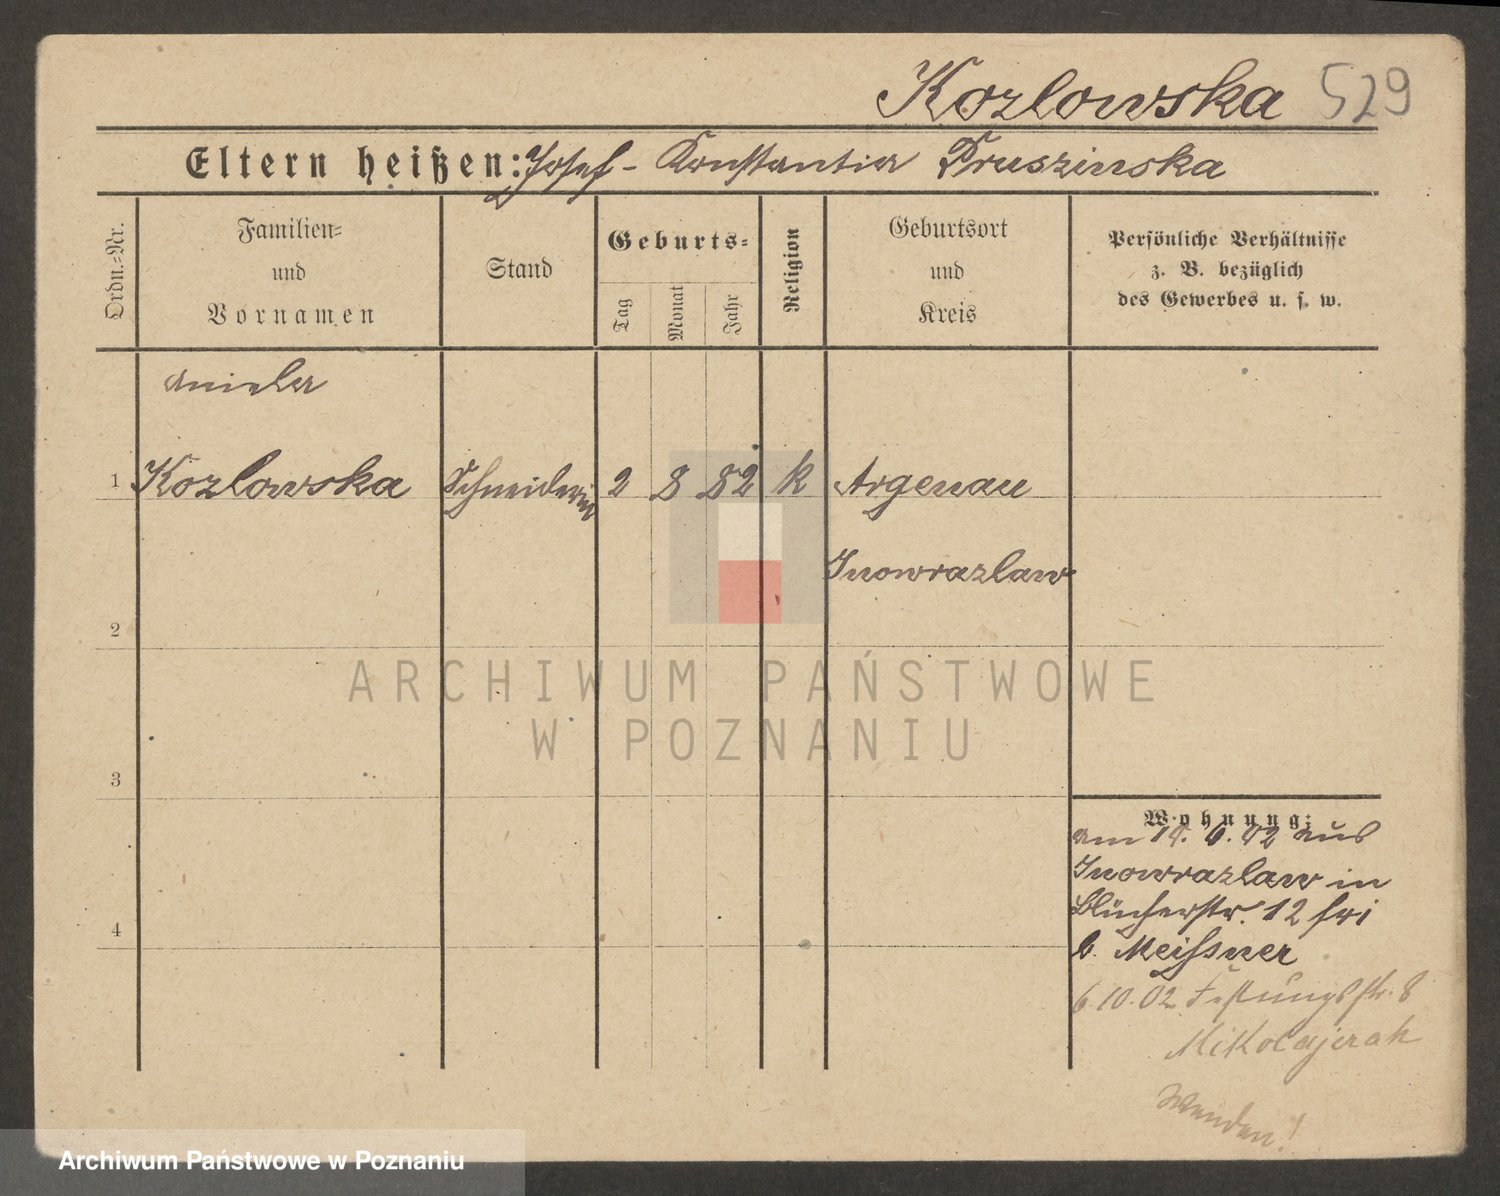 Kozlowska 529
Eltern heißen: Josef - Konstantia Pruszinska
Ordn.-Nr.
Familien-
und
Vornamen
Stand
Geburts-
Tag
Monat
Jahr
Religion
Geburtsort
und
Kreis
Persönliche Verhältnisse
z. B. bezüglich
des Gewerbes u. s. w.
Aniela
1 Kozlowska Schneiderin 2 8 82 k Argenau
Inowrazlaw
2
ARCHIWUM PAŃSTWOWE
W POZNANIU
3
Wohnung:
am 6. 02 aus
Inowrazlaw in
Blücherstr. 12
b. Meissner
6.10.02 Festungsstr. 8
Mikolajczak
4
Wenden!
Archiwum Państwowe w Poznaniu